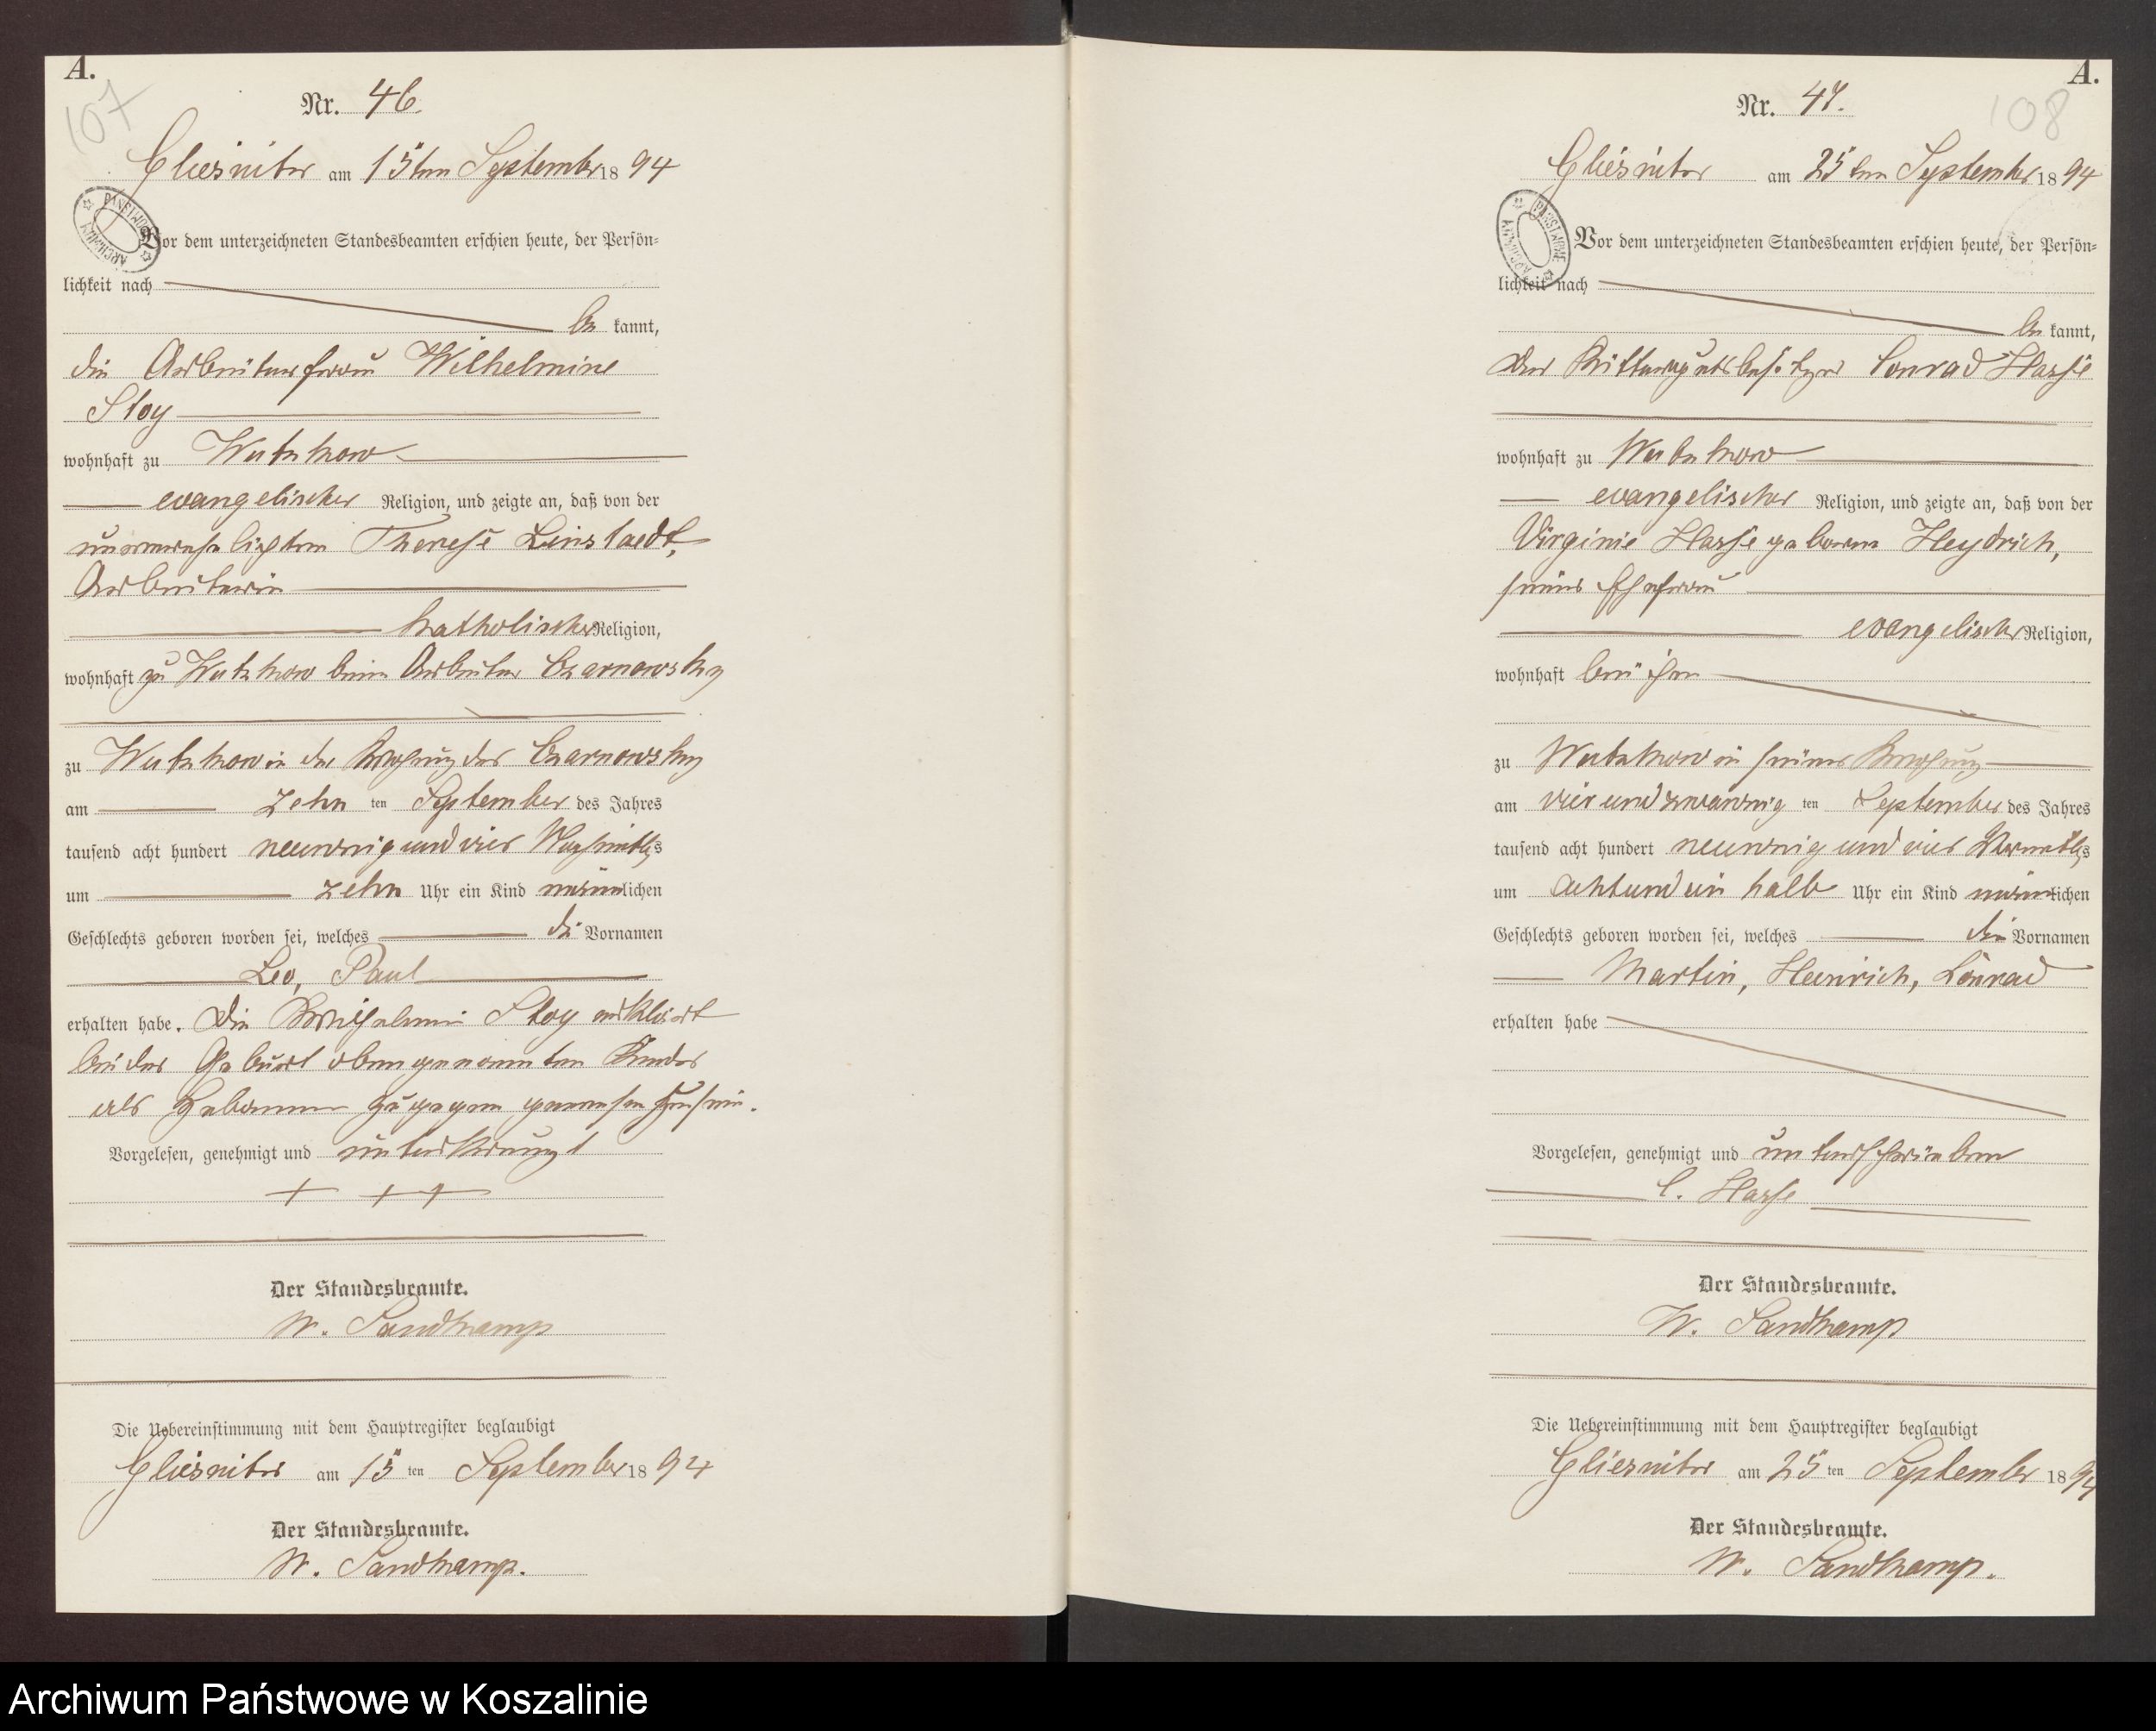 A.
107
Nr. 46.
Gliesnitz am 15ten September 1894
Vor dem unterzeichneten Standesbeamten erschien heute, der Persön-
lichkeit nach
be kannt,
die Arbeiterfrau Wilhelmine
Stoy
wohnhaft zu Wutzkow
evangelischer Religion, und zeigte an, daß von der
unverehelichten Therese Linstaedt,
Arbeiterin
katholischer Religion,
wohnhaft zu Wutzkow beim Arbeiter Czarnowsky
zu Wutzkow in der Wohnung des Czarnowsky
am zehn ten September des Jahres
tausend acht hundert neunzig und vier Nachmittgs
um zehn Uhr ein Kind männlichen
Geschlechts geboren worden sei, welches die Vornamen
Leo, Paul
erhalten habe. Die Stoy erklärt
bei der Geburt obengenannten Kindes
als Hebamme zugegen gewesen zu sein.
Vorgelesen, genehmigt und unterkreuzt
+ + +
Der Standesbeamte.
W. Sandkamp
Die Uebereinstimmung mit dem Hauptregister beglaubigt
Gliesnitz am 15 ten September 1894
Der Standesbeamte.
W. Sandkamp.
A.
108
Nr. 47.
Gliesnitz am 25ten September 1894
Vor dem unterzeichneten Standesbeamten erschien heute, der Persön-
lichkeit nach
be kannt,
der Rittergutsbesitzer Conrad Hasse
wohnhaft zu Wutzkow
evangelischer Religion, und zeigte an, daß von der
Virginie Hasse geborene Heydrich,
seiner Ehefrau
evangelischer Religion,
wohnhaft bei ihm
zu Wutzkow in seiner Wohnung
am vier und zwanzig ten September des Jahres
tausend acht hundert neunzig und vier Vormittgs
um acht und ein halb Uhr ein Kind männlichen
Geschlechts geboren worden sei, welches die Vornamen
Martin, Heinrich, Conrad
erhalten habe
Vorgelesen, genehmigt und unterschrieben
C. Hasse
Der Standesbeamte.
W. Sandkamp
Die Uebereinstimmung mit dem Hauptregister beglaubigt
Gliesnitz am 25 ten September 1894
Der Standesbeamte.
W. Sandkamp.
Archiwum Państwowe w Koszalinie